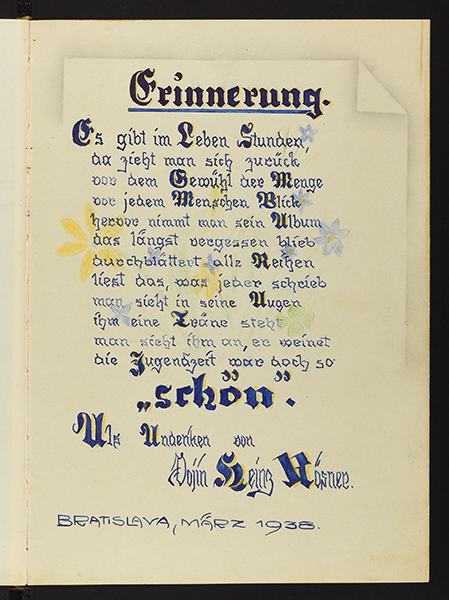 Erinnerung.
Es gibt im Leben Stunden,
da zieht man sich zurück
vor dem Gewühl der Menge
vor jedem Menschen Blick
hervor nimmt man sein Album
das längst vergessen blieb
durchblättert alle Reihen
liest das, was jeder schrieb
man sieht in seine Augen
ihm eine Träne steht
man sieht ihm an, er weinet
die Jugendzeit war doch so
„schön”.
Als Andenken von
Heinz Rösner.
BRATISLAVA, MÄRZ 1938.